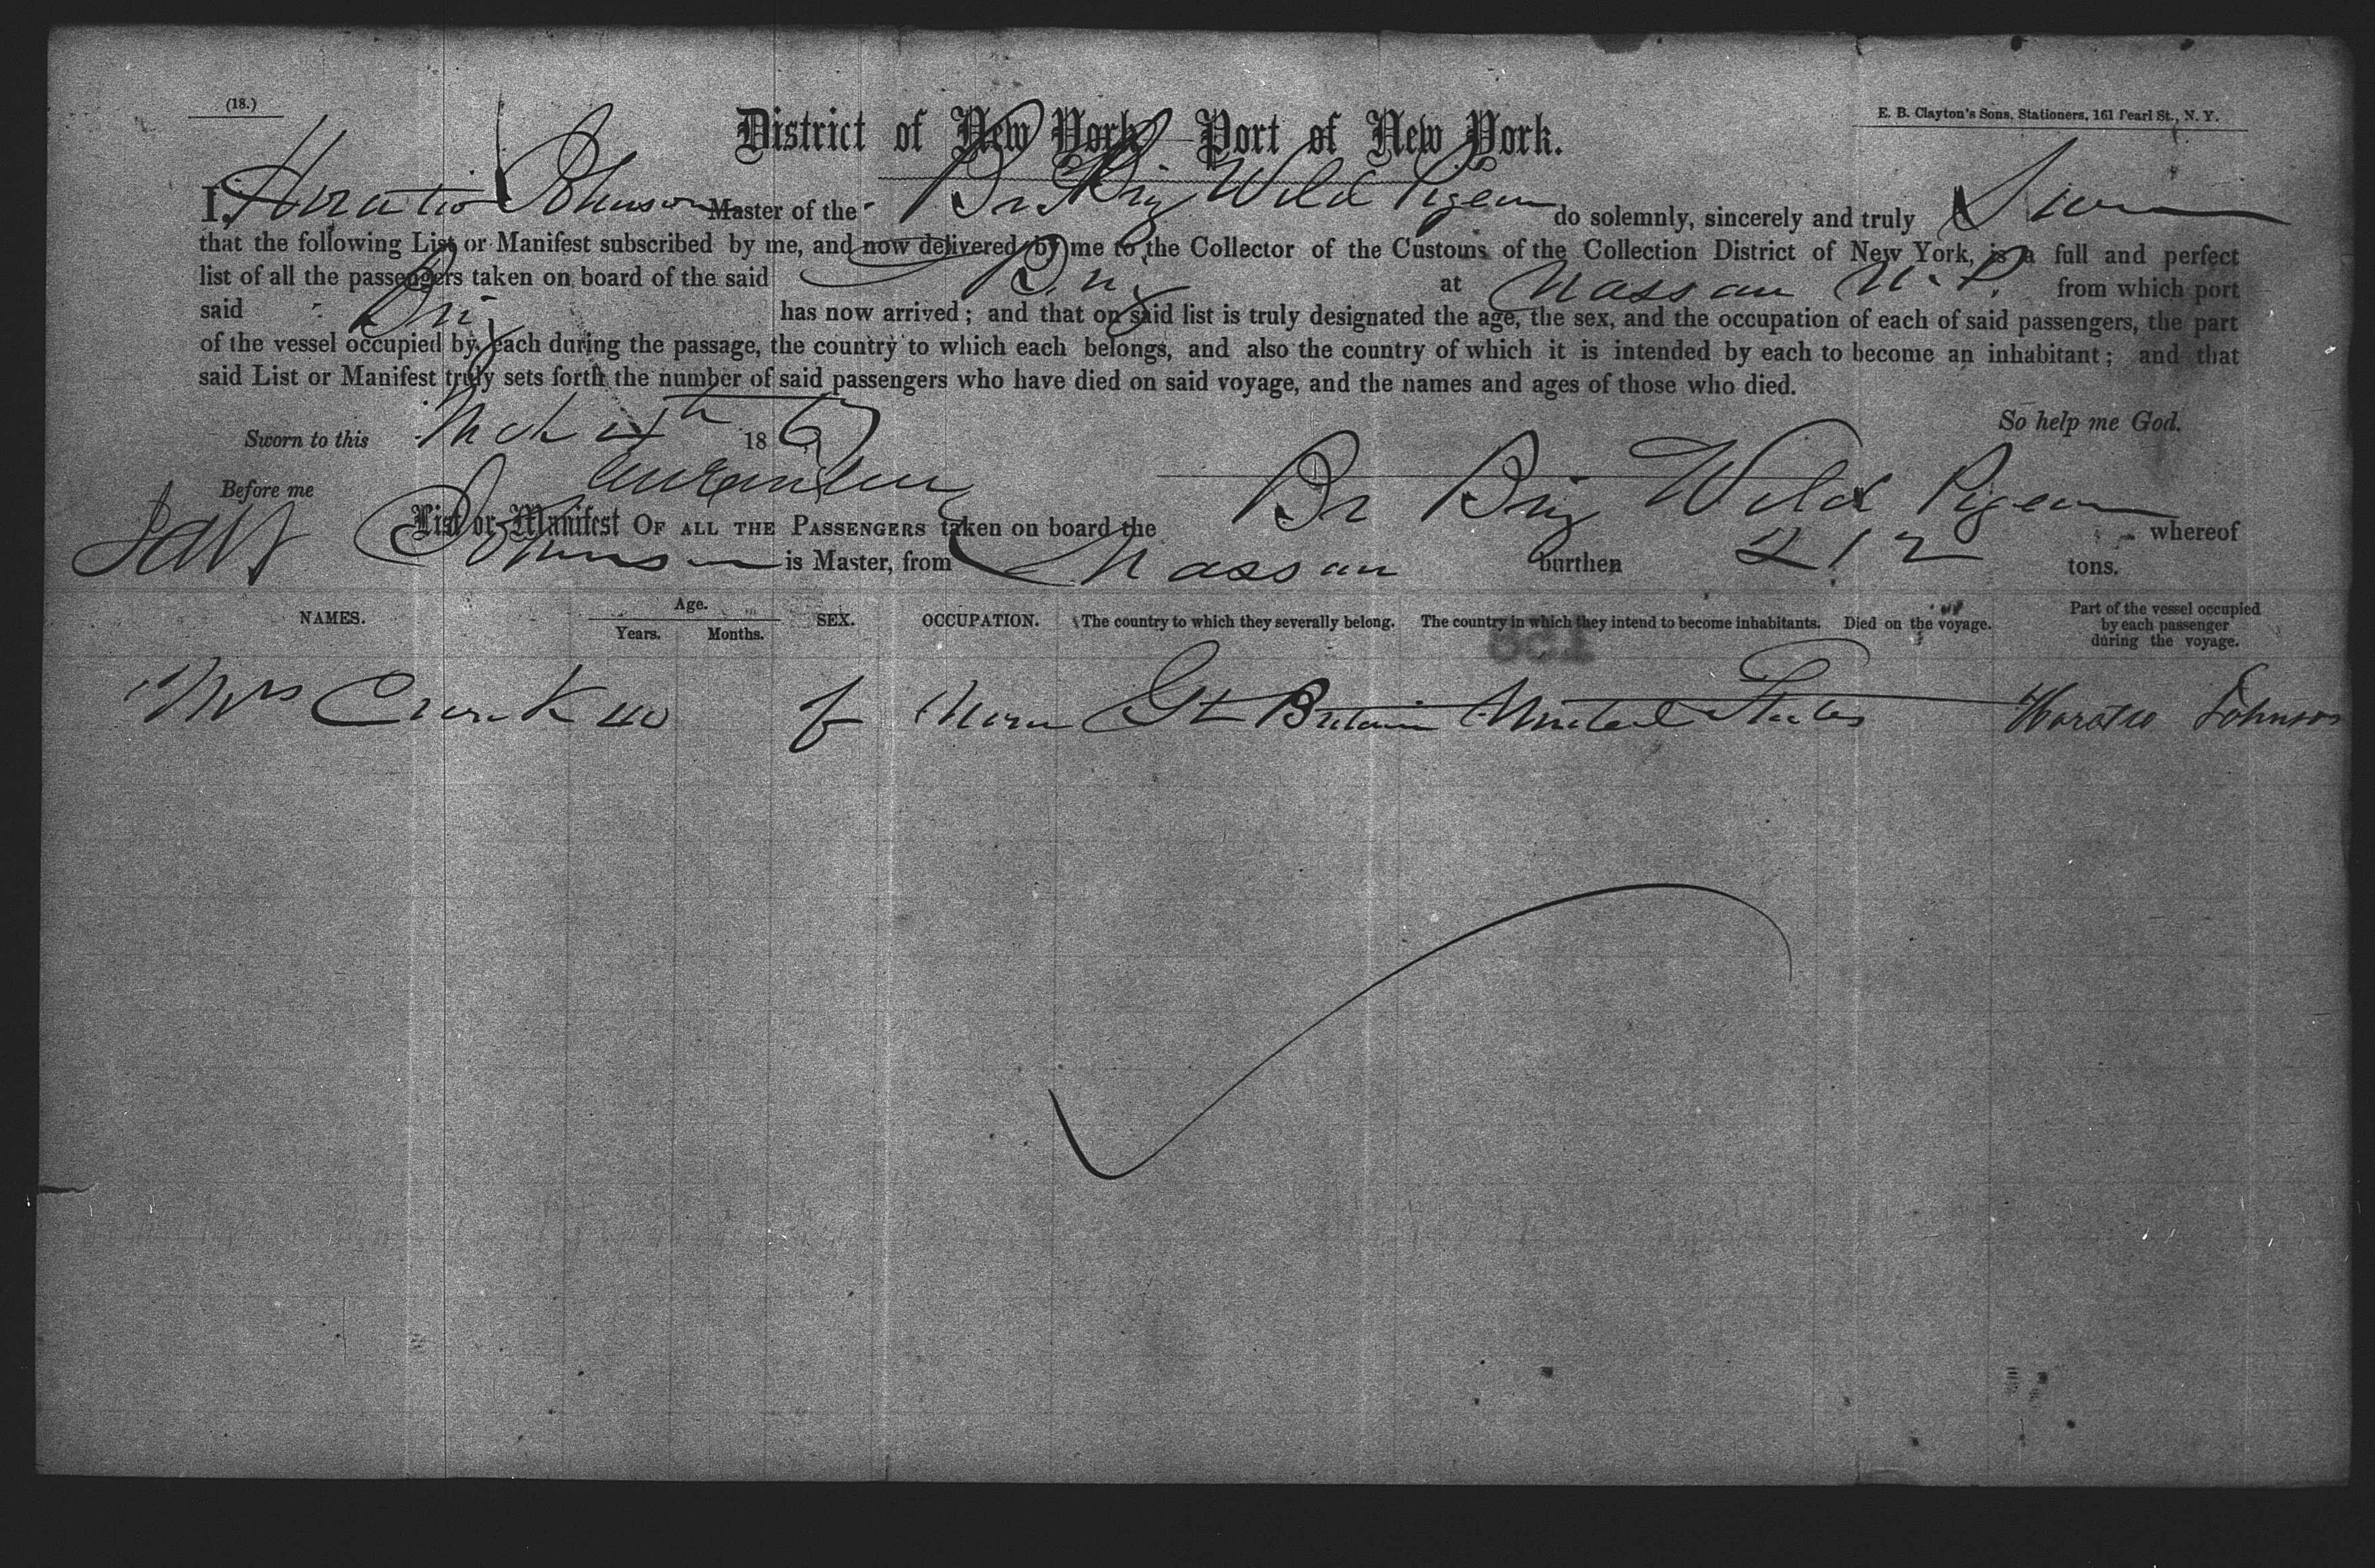 (18.)
E. B. Clayton's Sons, Stationers, 161 Pearl St., N. Y.
District of New York—Port of New York.
I, Horatio Johnson Master of the Br Brig Wild Pigeon do solemnly, sincerely and truly Swear
that the following List or Manifest subscribed by me, and now delivered by me to the Collector of the Customs of the Collection District of New York, is a full and perfect
list of all the passengers taken on board of the said Brig at Nassau N. P. from which port
said Brig has now arrived; and that on said list is truly designated the age, the sex, and the occupation of each of said passengers, the part
of the vessel occupied by each during the passage, the country to which each belongs, and also the country of which it is intended by each to become an inhabitant; and that
said List or Manifest truly sets forth the number of said passengers who have died on said voyage, and the names and ages of those who died.
So help me God.
Sworn to this Mch 4th 186
Before me
List or Manifest OF ALL THE PASSENGERS taken on board the Br Brig Wild Pigeon whereof
Johnson is Master, from Nassau burthen 212 tons.
NAMES. Age. Years. Months. SEX. OCCUPATION. The country to which they severally belong. The country in which they intend to become inhabitants. Died on the voyage. Part of the vessel occupied by each passenger during the voyage.
Mrs 40 f Gt Britain United States Horatio Johnson